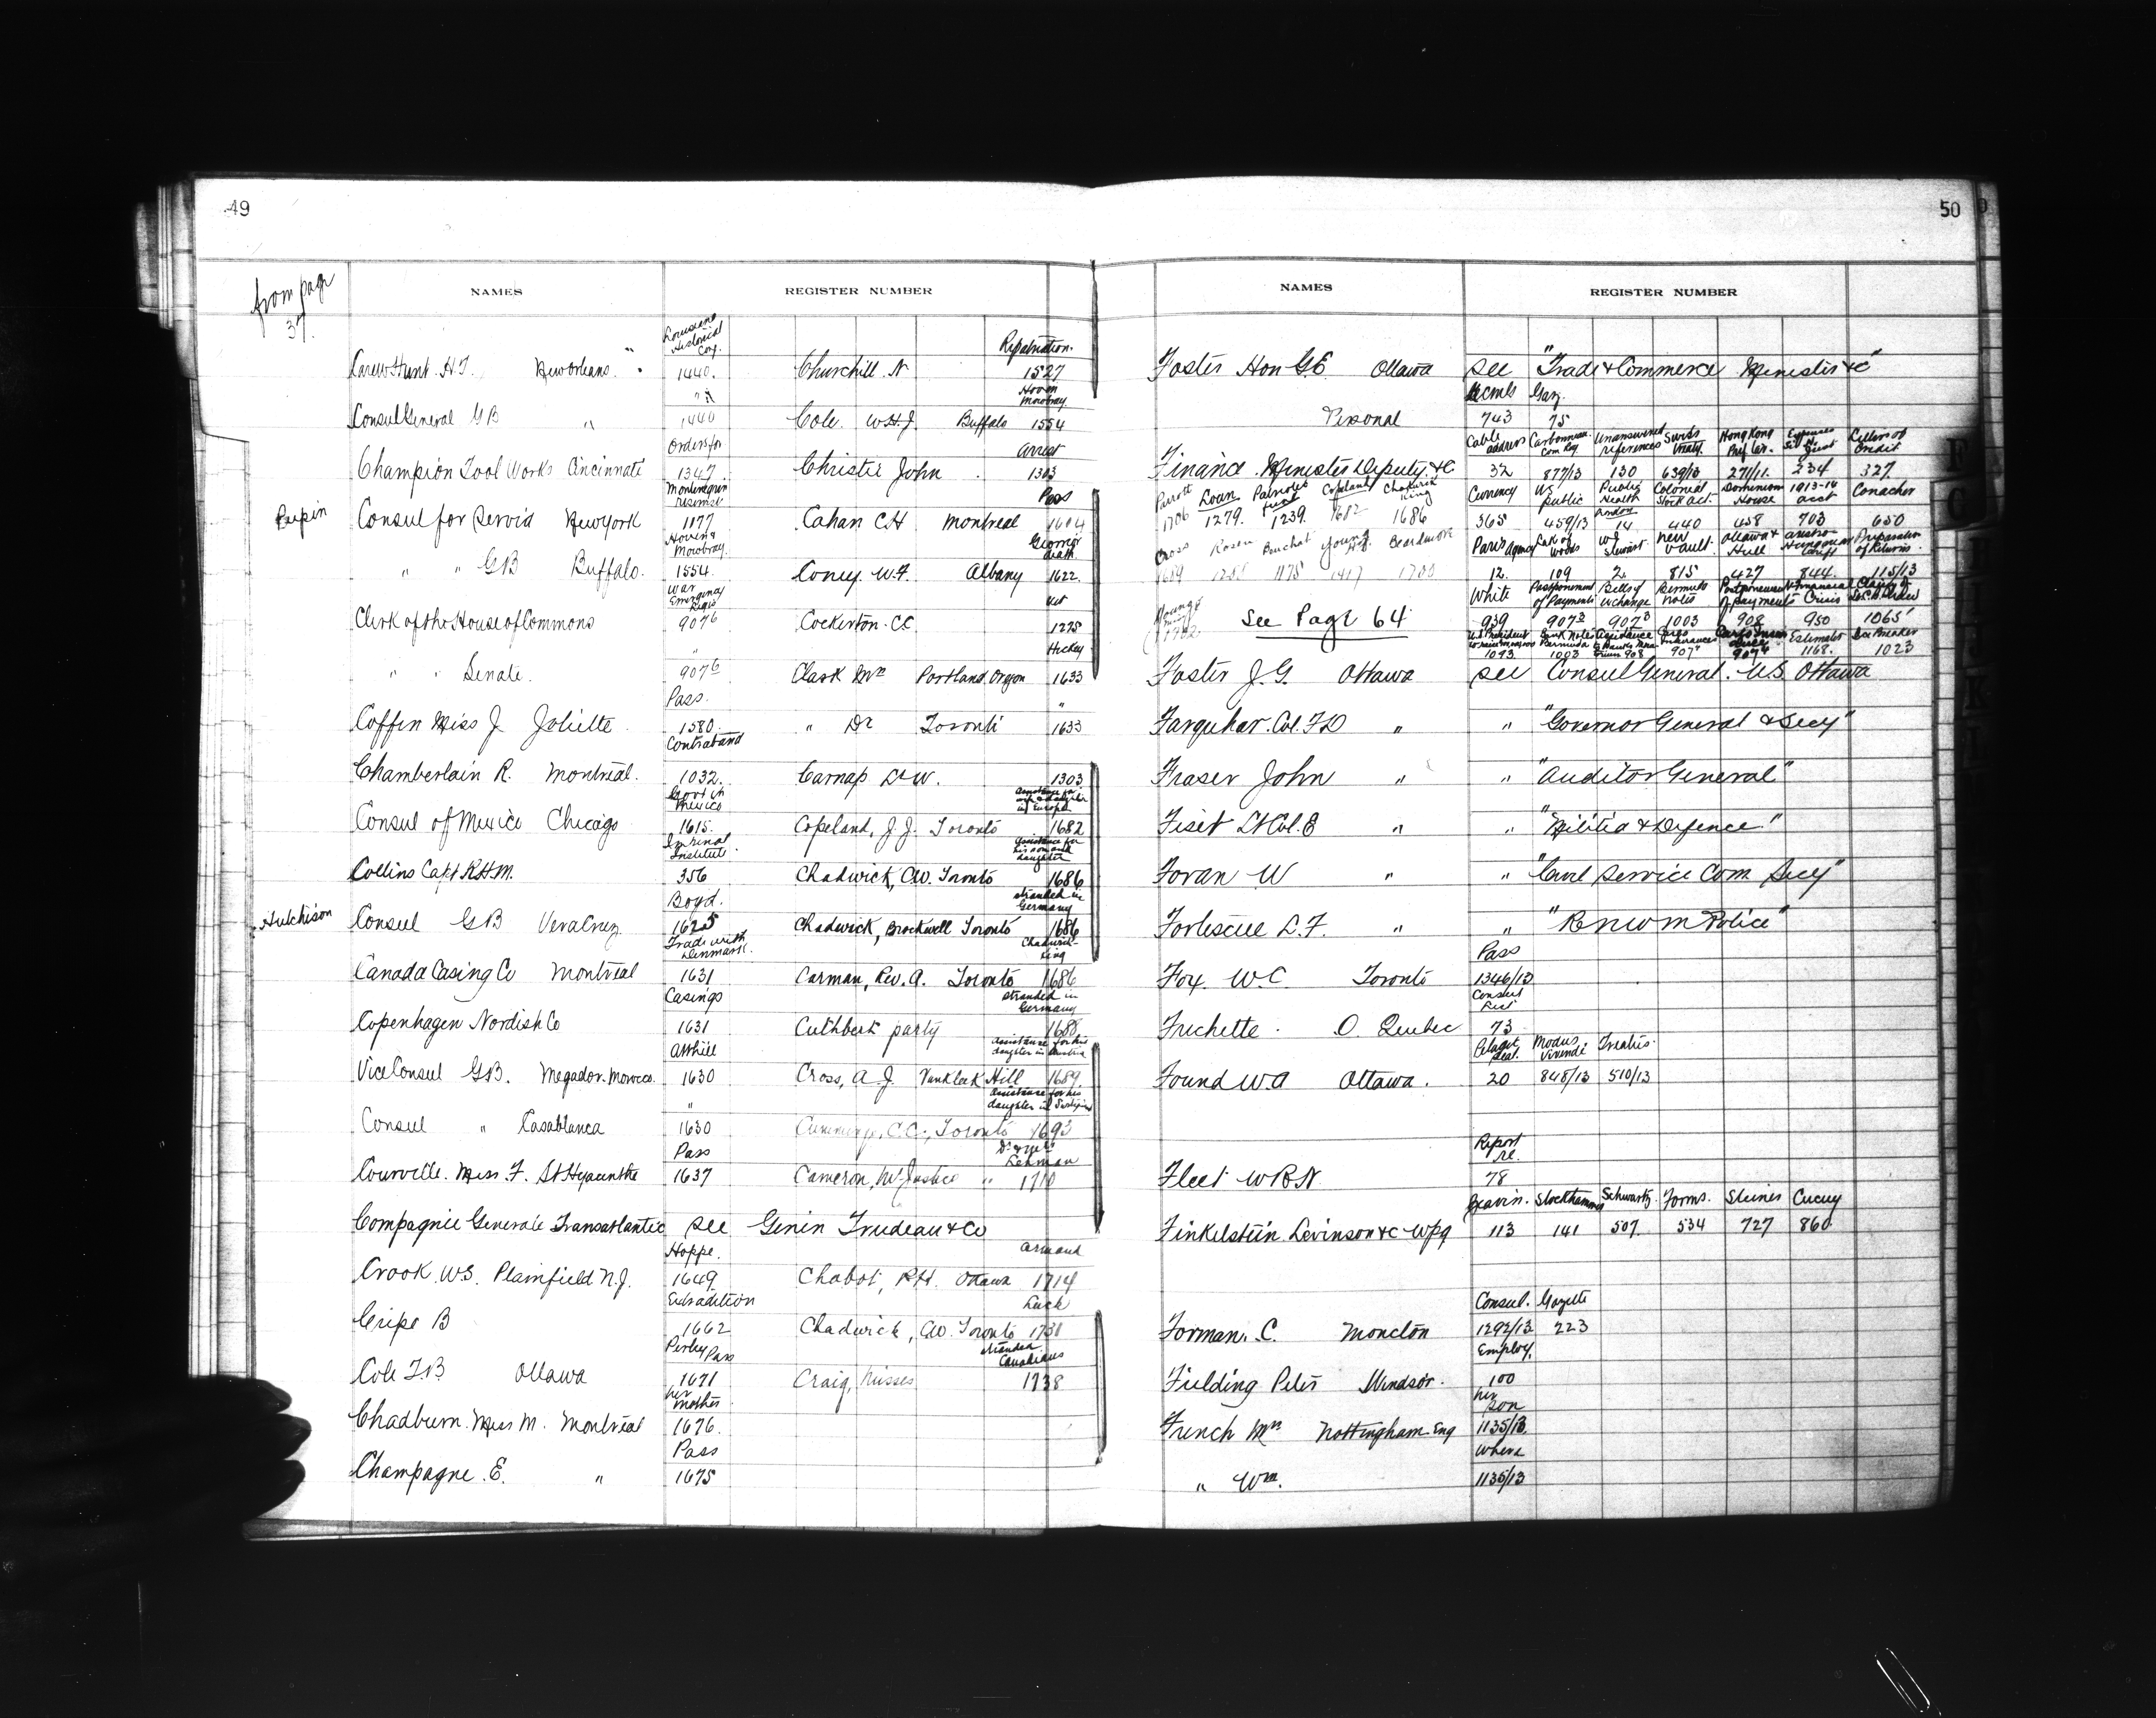 49
from page
37.
NAMES
REGISTER NUMBER
Louisiana
Historical
Coy.
Repatriation.
Carew Hunt. H.T. New Orleans. "
1440.
Churchill. N
1527
Hoven
Mowbray
Consul General GB "
1440
Cole. W.H.J. Buffalo
1554
Orders for
Arrest
Champion Tool Works Cincinnati
1347
Christie John
1303
Montenegrin
reservist
Pass
Pupin
Consul for Servia New York
1177
Cahan CH Montreal
1604
Hoven &
Mowbray
George
death
" " GB Buffalo.
1554.
Coney. W.F. Albany
1622
War
Emergency
Legis
Clerk of the House of Commons
907 6
Cockerton. CC
1275
Hickey
" " Senate.
907 6
Clark Mrs Portland, Oregon
1633
Pass.
"
Coffin Miss J Joliette
1580.
" Dr Toronto
1633
Contraband
Chamberlain R. Montreal.
1032.
Carnap D W.
1303
Govt in
Mexico
Consul of Mexico Chicago
1615.
Copeland, J.J. Toronto
1682
Imperial
Institute
assistance for
his son and
daughter
Collins Capt R.H.M.
356
Chadwick, C.W. Toronto
1686
Boyd.
stranded in
Germany
Hutchison
Consul GB Vera Cruz
1625
Chadwick, Brockwell Toronto
1686
Trade with
Denmark.
Chadwick
King
Canada Casing Co Montreal
1631
Carman, Rev. A. Toronto
1686
Casings
stranded in
Germany
Copenhagen Nordish Co
1631
Cuthbert party
1688
Atthill
assistance for his
daughter in Austria
Vice Consul GB. Mogador. Morocco.
1630
Cross, A.J. Vankleek Hill
1689.
"
assistance for his
daughter in
Consul " Casablanca
1630
Cummings, C.C., Toronto
1693
Pass
Lehman
Courville. Miss. F. St Hyacinthe
1637
Cameron, Mr Justice "
1710
Compagnie Generale Transatlantic see Genin Trudeau & Co
Hoppe.
Armand
Crook. WS. Plainfield N.J.
1649
Chabot, P.H. Ottawa
1714
Extradition
Luck
Cripe B
1662
Chadwick, C.W. Toronto
1731
Perley Pass
stranded
Canadians
Cole F.B. Ottawa
1671
Craig, Misses
1738
her
mother
Chadburn. Miss M. Montreal
1676.
Pass
Champagne. E. "
1675
50
NAMES
REGISTER NUMBER
Foster Hon G.E. Ottawa see "Trade & Commerce Minister &c"
Gaz.
Personal
743 75
Cable
address
Com Reg.
Unanswered
references
Swiss
treaty.
Hong Kong
Expenses
Letters of
Credit
Finance Minister Deputy &c
32 877/13 130 639/13 271/11. 234 327.
Parrott Loan Patriotic
Fund Copeland Chadwick
King
1706 1279. 1239. 1682 1686
Currency US
public Public
Health Colonial
Stock act. Dominion
House 1913-14
acct Conacher
365 459/13 14 440 458 703 650
Cross Rosen Bouchat Young Beardmore
Paris agency Lak of
Woods WJ
Stewart New
Vault. Ottawa &
Hull Austro-
Hungarian
tariff Preparation
of Returns.
12. 109 2. 815 427 844. 115/13
White Postponement
of Payments Bills of
exchange Bermuda
Notes Postponement
of payments Financial
Crisis
See Page 64
939 907 3 907 3 1003 908 950 1065
Estimates Ice Breaker
1093 1003 907 1168. 1023
Foster J.G. Ottawa see Consul General. U.S. Ottawa
Farquhar. Col. F.D " " "Governor General & Secy"
Fraser John " " "Auditor General"
Fiset Lt Col. E " " "Militia & Defence."
Foran W " " "Civil Service Com Secy"
Fortescue L.F. " " "R N W M Police"
Pass
Fox. W.C. Toronto
1346/13
Consul
List
Frechette. O. Quebec
73
Pelagic
Seal. Modus
Vivendi Treaties.
Found W.A Ottawa.
20 848/13 510/13
Report
re.
Fleet WRN
78
Gravin. Stockhammer Schwartz Forms. Steiner Cucuy
Finkelstein Levinson &c Wpg
113 141 507. 534 727 860
Consul. Gazette
Forman. C. Moncton
1292/13 223
Employ.
Fielding Peter Windsor.
100
her
son
French Mrs Nottingham Eng
1135/13.
Where
" Wm.
1135/13